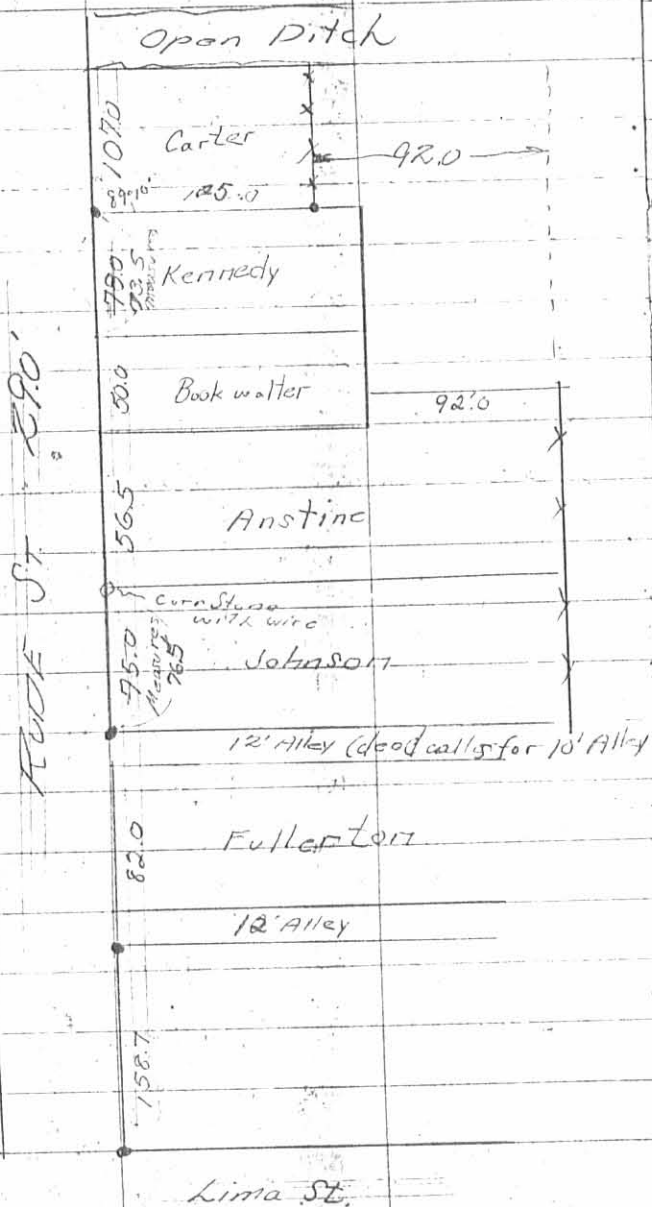 Open Ditch
107.0
Carter
92.0
89°10'
125.0
79.0
73.5
measures
Kennedy
50.0
Bookwalter
92.0
RUDE ST 29.0'
56.5
Anstine
Corn Stone
with wire
75.0
Measures
76.5
Johnson
12' Alley (deed calls for 10' Alley
82.0
Fullerton
12' Alley
158.7
Lima St.